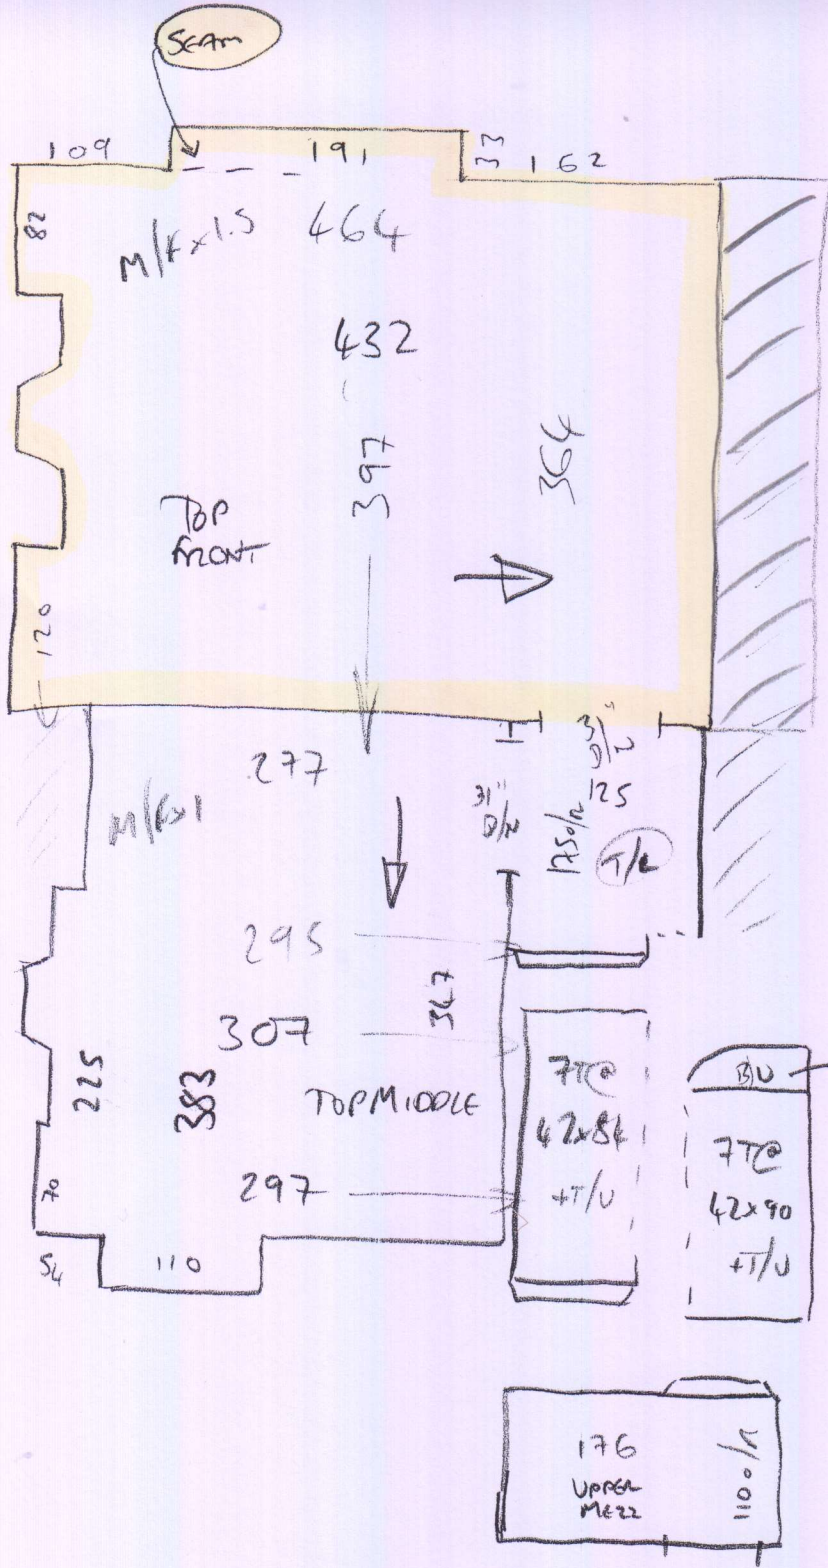 SEAM
109
191
33
162
82
M/F x 1.5
464
432
397
364
TOP
FRONT
120
277
M/F x 1
31"
D/N
31"
D/N
125
175 o/r
T/L
295
307
347
225
383
TOP MIDDLE
70
297
54
110
7T@
42x84
+T/U
B/U
7T@
42x90
+T/U
176
UPPER
MEZZ
110 o/r